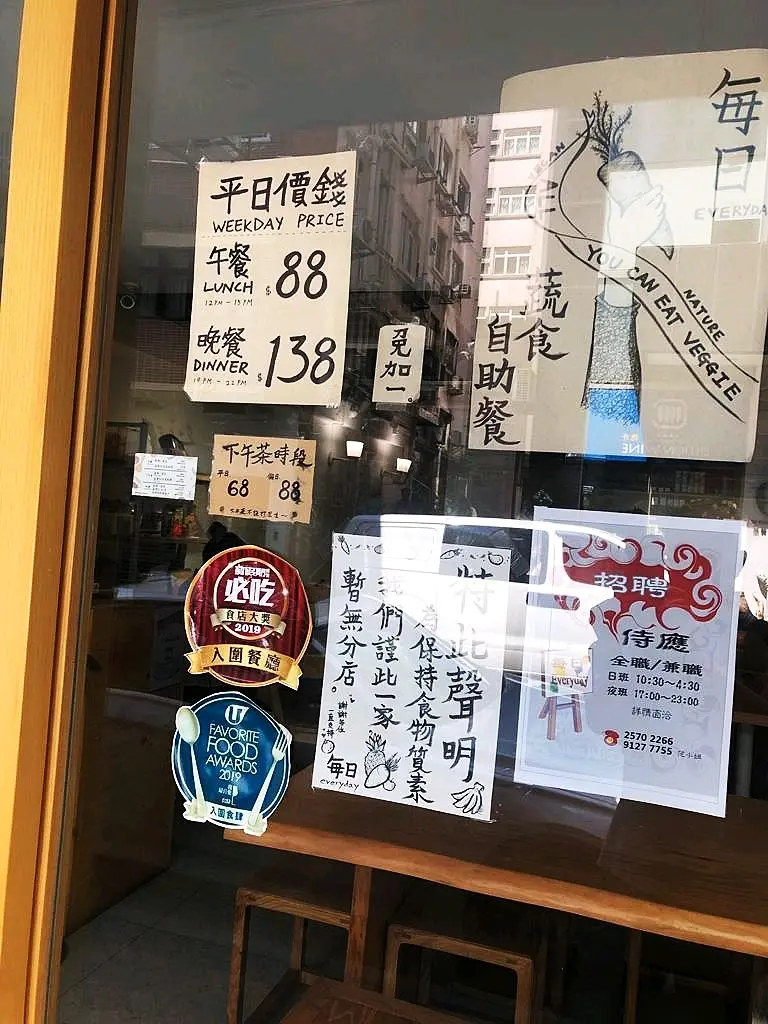 平日價錢
WEEKDAY PRICE
午餐
LUNCH $88
12PM - 15PM
晚餐
DINNER $138
18PM - 22PM
免加一。
下午茶時段
平日 假日
68 88
每日
EVERYDAY
VEGAN
YOU CAN EAT VEGGIE
NATURE
蔬食
自助餐
必吃
食店大獎
2019
入圍餐廳
U
FAVORITE
FOOD
AWARDS
2019
入圍食肆
特此聲明
為保持食物質素
我們謹此一家
暫無分店。
每日
everyday
招聘
侍應
全職/兼職
日班 10:30~4:30
夜班 17:00~23:00
詳情面洽
2570 2266
9127 7755 范小姐
每日
Everyday